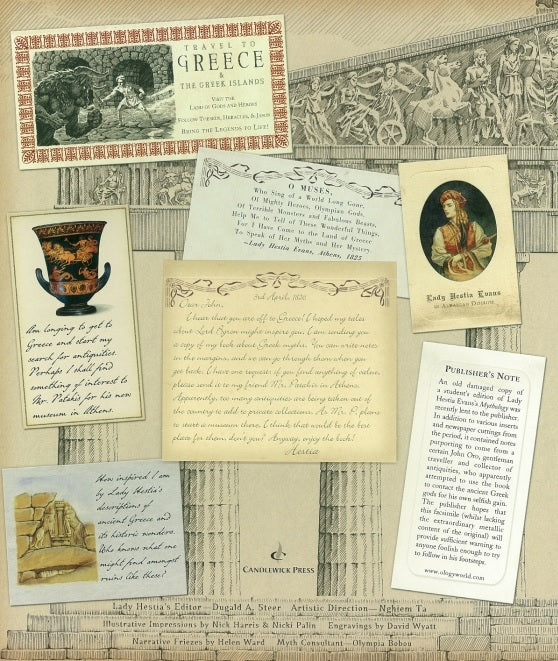 TRAVEL TO
GREECE
&
THE GREEK ISLANDS
VISIT THE
LAND OF GODS AND HEROES
FOLLOW THESEUS, HERACLES, & JASON
BRING THE LEGENDS TO LIFE!
O MUSES,
Who Sing of a World Long Gone,
Of Mighty Heroes, Olympian Gods,
Of Terrible Monsters and Fabulous Beasts,
Help Me to Tell of These Wonderful Things,
For I Have Come to the Land of Greece
To Speak of Her Myths and Her Mystery.
~Lady Hestia Evans, Athens, 1825
Lady Hestia Evans
IN ALBANIAN DISGUISE
Am longing to get to
Greece and start my
search for antiquities.
Perhaps I shall find
something of interest to
Mr. Patakis for his new
museum in Athens.
3rd April, 1830
Dear John,
I hear that you are off to Greece! I hoped my tales
about Lord Byron might inspire you. I am sending you
a copy of my book about Greek myths. You can write notes
in the margins, and we can go through them when you
get back. I have one request: if you find anything of value,
please send it to my friend Mr. Patakis in Athens.
Apparently, too many antiquities are being taken out of
the country to add to private collections. As Mr. P. plans
to start a museum there, I think that would be the best
place for them, don't you? Anyway, enjoy the book!
Hestia
PUBLISHER'S NOTE
An old damaged copy of
a student's edition of Lady
Hestia Evans's Mythology was
recently lent to the publisher.
In addition to various inserts
and newspaper cuttings from
the period, it contained notes
purporting to come from a
certain John Oro, gentleman
traveller and collector of
antiquities, who apparently
attempted to use the book
to contact the ancient Greek
gods for his own selfish gain.
The publisher hopes that
this facsimile (whilst lacking
the extraordinary metallic
content of the original) will
provide sufficient warning to
anyone foolish enough to try
to follow in his footsteps.
www.ologyworld.com
How inspired I am
by Lady Hestia's
descriptions of
ancient Greece and
its historic wonders.
Who knows what one
might find amongst
ruins like these?
CANDLEWICK PRESS
Lady Hestia's Editor—Dugald A. Steer Artistic Direction—Nghiem Ta
Illustrative Impressions by Nick Harris & Nicki Palin Engravings by David Wyatt
Narrative Friezes by Helen Ward Myth Consultant—Olympia Bobou